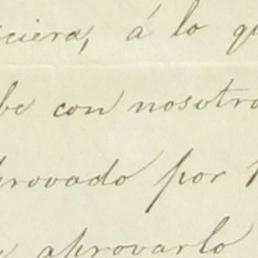 ciera, á lo qu
be con nosotro
provado por
aprovarlo